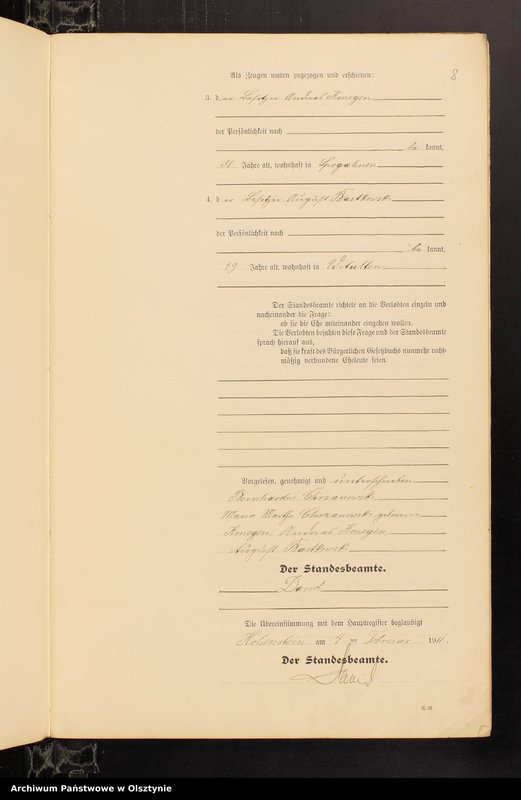 8
Als Zeugen waren zugezogen und erschienen:
3. der Besitzer Andreas Konegen
der Persönlichkeit nach
be kannt,
51 Jahre alt, wohnhaft in
4. der Besitzer August Bartkowski
der Persönlichkeit nach
be kannt,
49 Jahre alt, wohnhaft in Witulten
Der Standesbeamte richtete an die Verlobten einzeln und
nacheinander die Frage:
ob sie die Ehe miteinander eingehen wollen.
Die Verlobten bejahten diese Frage und der Standesbeamte
sprach hierauf aus,
daß sie kraft des Bürgerlichen Gesetzbuchs nunmehr recht-
mäßig verbundene Eheleute seien.
Vorgelesen, genehmigt und unterschrieben
Bernhardin Chrzanowski
Maria Martha Chrzanowski geborene
Konegen, Andreas Konegen
August Bartkowski
Der Standesbeamte.
David
Die Übereinstimmung mit dem Hauptregister beglaubigt
Hohenstein am 4 ten Februar 1911.
Der Standesbeamte.
David
Archiwum Państwowe w Olsztynie